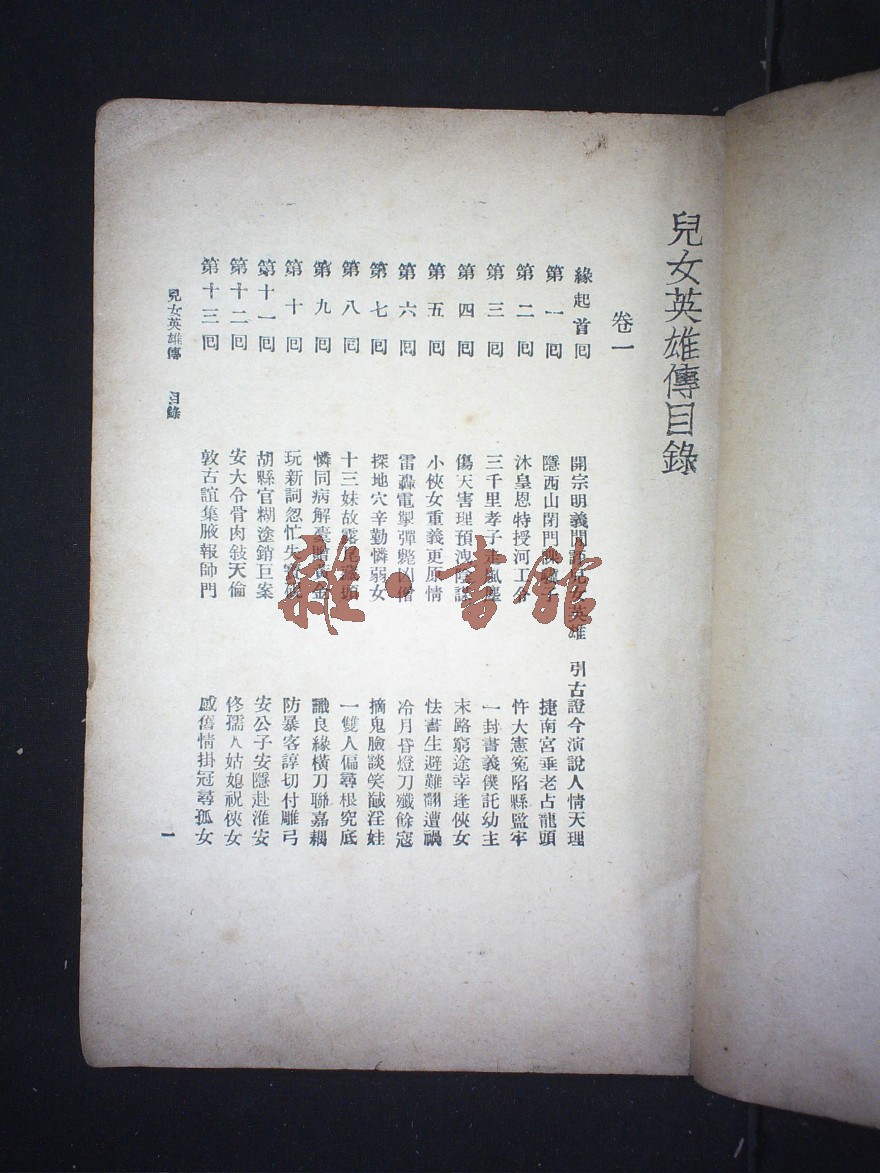 兒女英雄傳目錄
卷一
緣起首囘 開宗明義閒評兒女英雄 引古證今演說人情天理
第一囘 隱西山閉門課驥子 捷南宮垂老占龍頭
第二囘 沐皇恩特授河工令 忤大憲冤陷縣監牢
第三囘 三千里孝子走風塵 一封書義僕託幼主
第四囘 傷天害理預洩陰謀 末路窮途幸逢俠女
第五囘 小俠女重義更原情 怯書生避難翻遭禍
第六囘 雷轟電掣彈斃凶僧 冷月昏燈刀殲餘寇
第七囘 探地穴辛勤憐弱女 摘鬼臉談笑馘淫娃
第八囘 十三妹故露尾藏頭 一雙人偏尋根究底
第九囘 憐同病解橐贈黃金 識良緣橫刀聯嘉耦
第十囘 玩新詞忽忙失寶硯 防暴客諄切付雕弓
第十一囘 胡縣官糊塗銷巨案 安公子安隱赴淮安
第十二囘 安大令骨肉敍天倫 佟孺人姑媳祝俠女
第十三囘 敦古誼集腋報師門 感舊情掛冠尋孤女
兒女英雄傳 目錄
一
雜·書館